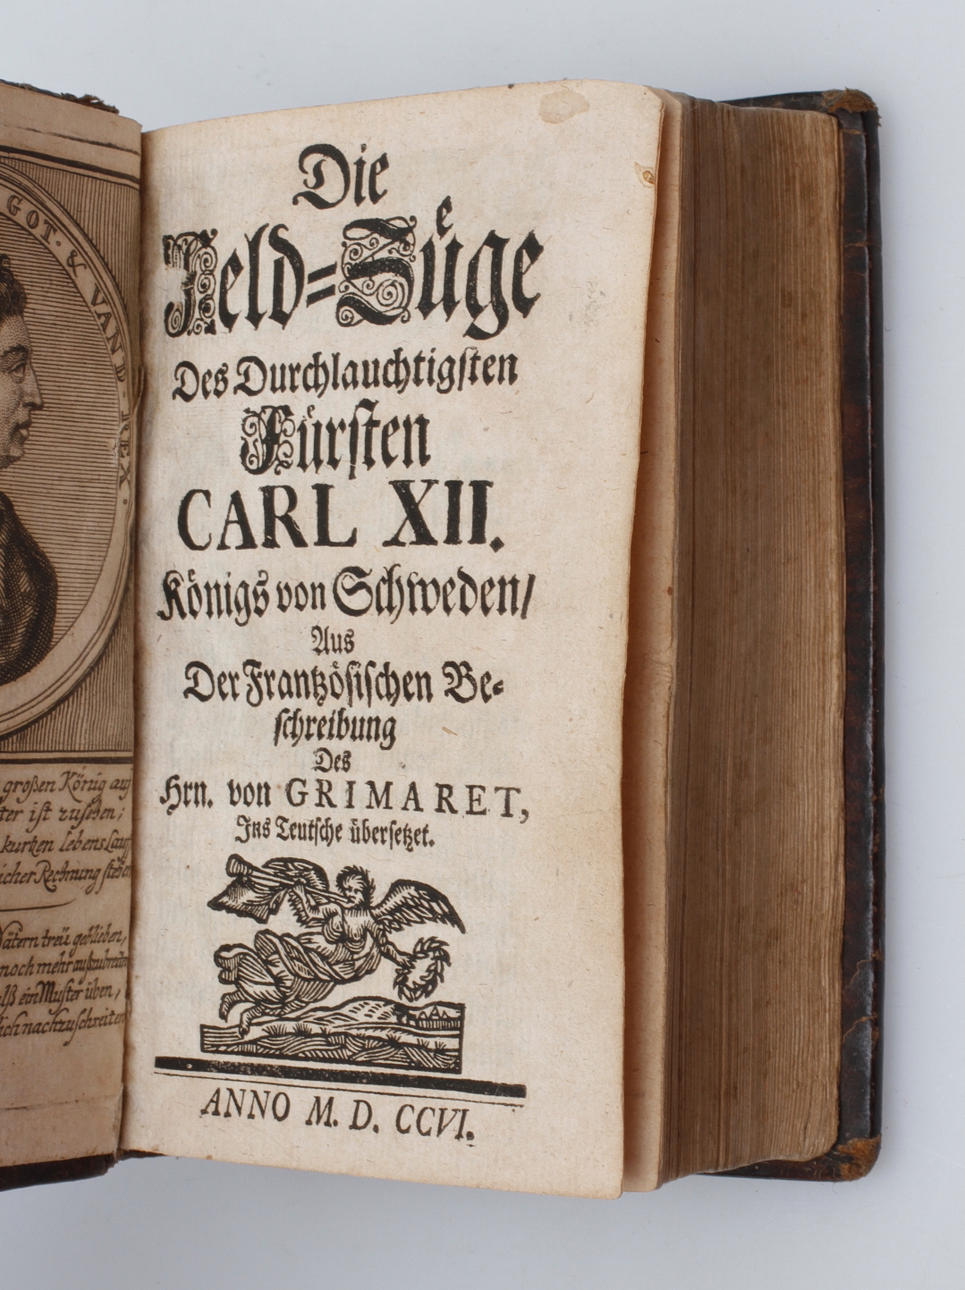 GOT. & VAND. REX.
großen König auf
ter ist zusehen;
kurtzen lebens Lauf
icher Rechnung stehen
Vätern treü geblieben,
noch mehr
ein Muster üben,
Die
Feld=Zůge
Des Durchlauchtigsten
Fürsten
CARL XII.
Königs von Schweden/
Aus
Der Frantzösischen Be-
schreibung
Des
Hrn. von GRIMARET,
Ins Teutsche übersetzet.
ANNO M. D. CCVI.